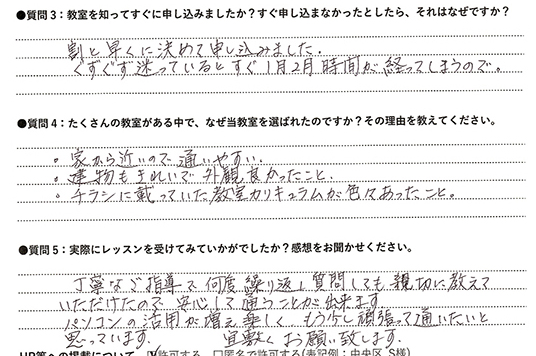 ●質問3：教室を知ってすぐに申し込みましたか？すぐ申し込まなかったとしたら、それはなぜですか？
割と早くに決めて申し込みました。
ぐずぐず迷っているとすぐ1月2月時間が経ってしまうので。
●質問4：たくさんの教室がある中で、なぜ当教室を選ばれたのですか？その理由を教えてください。
。家から近いので通いやすい。
。建物もきれいで外観良かったこと。
。チラシに載っていた教室カリキュラムが色々あったこと。
●質問5：実際にレッスンを受けてみていかがでしたか？感想をお聞かせください。
丁寧なご指導で何度繰り返し質問しても親切に教えて
いただけたので、安心して通うことが出来ます。
パソコンの活用が増え楽しく もう少し頑張って通いたいと
思っています。 宜敷くお願い致します。
HP等への掲載について ☑許可する □匿名で許可する(表記例：中央区 S様)